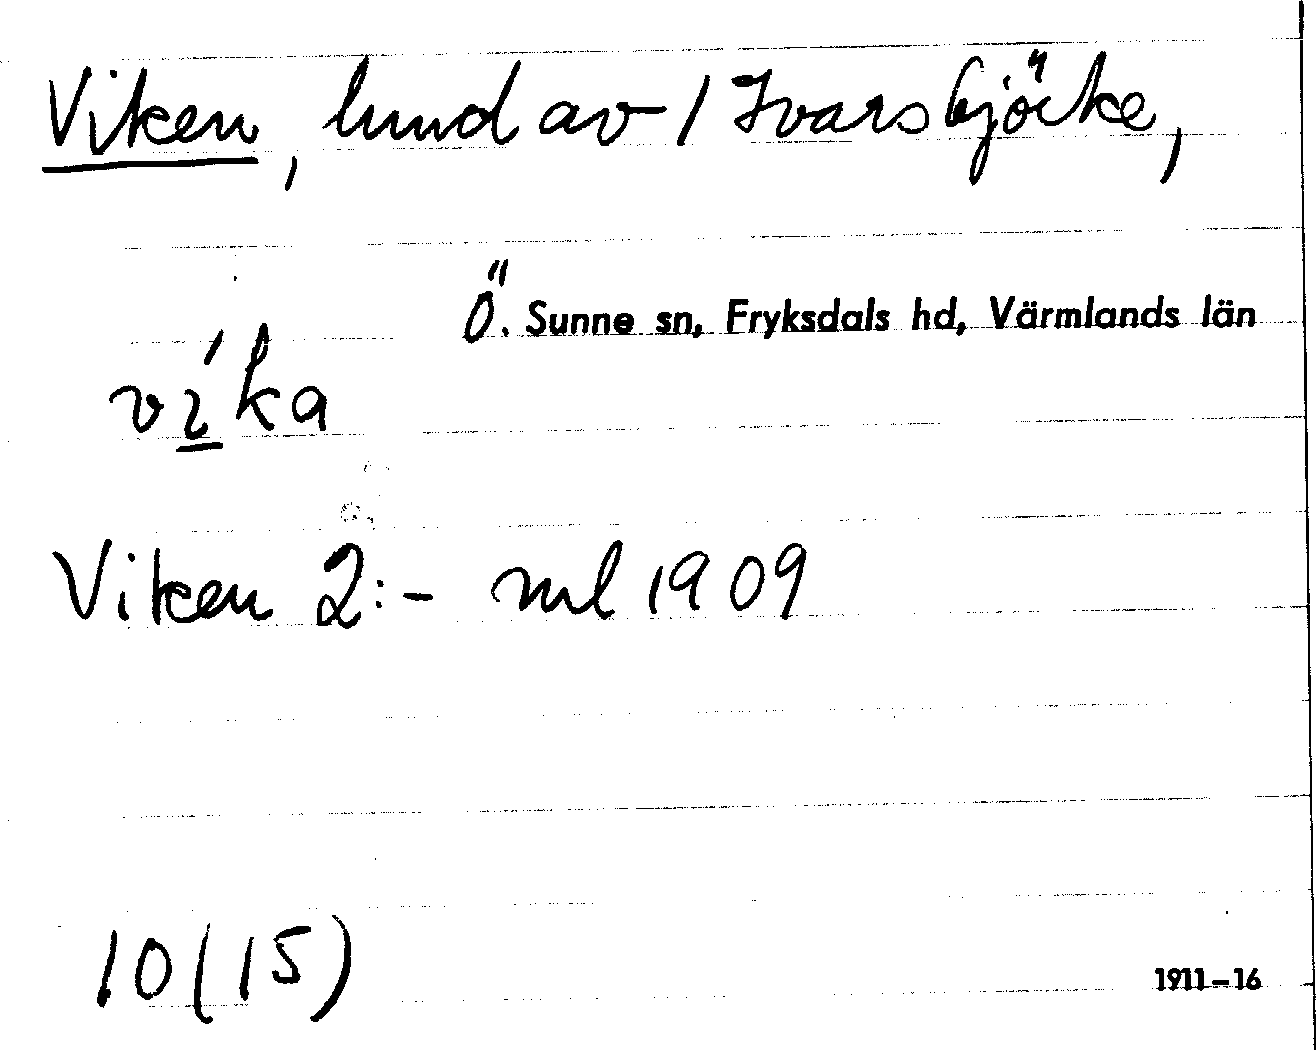 Viken, lund av / Ivarsbjörke,
Ö. Sunne sn, Fryksdals hd, Värmlands län
víka
Viken 2:- ml 1909
10(15)
1911-16